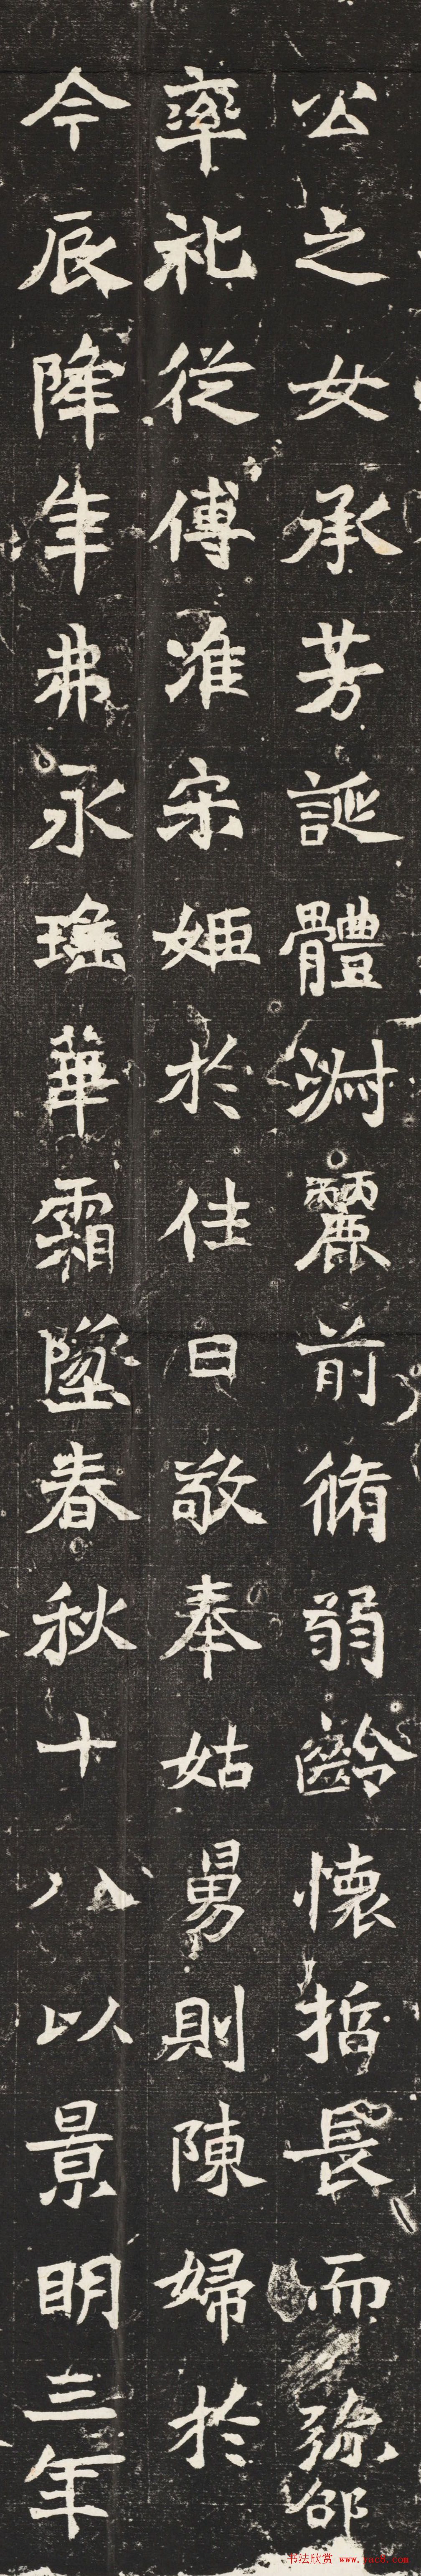 公之女承芳誕體洲麗前脩弱齡懷哲長而弥邵
率礼從傅准宋姬於往日敬奉姑舅則陳婦於
今辰降年弗永瑤華霜墜春秋十八以景明三年
书法欣赏 www.yac8.com